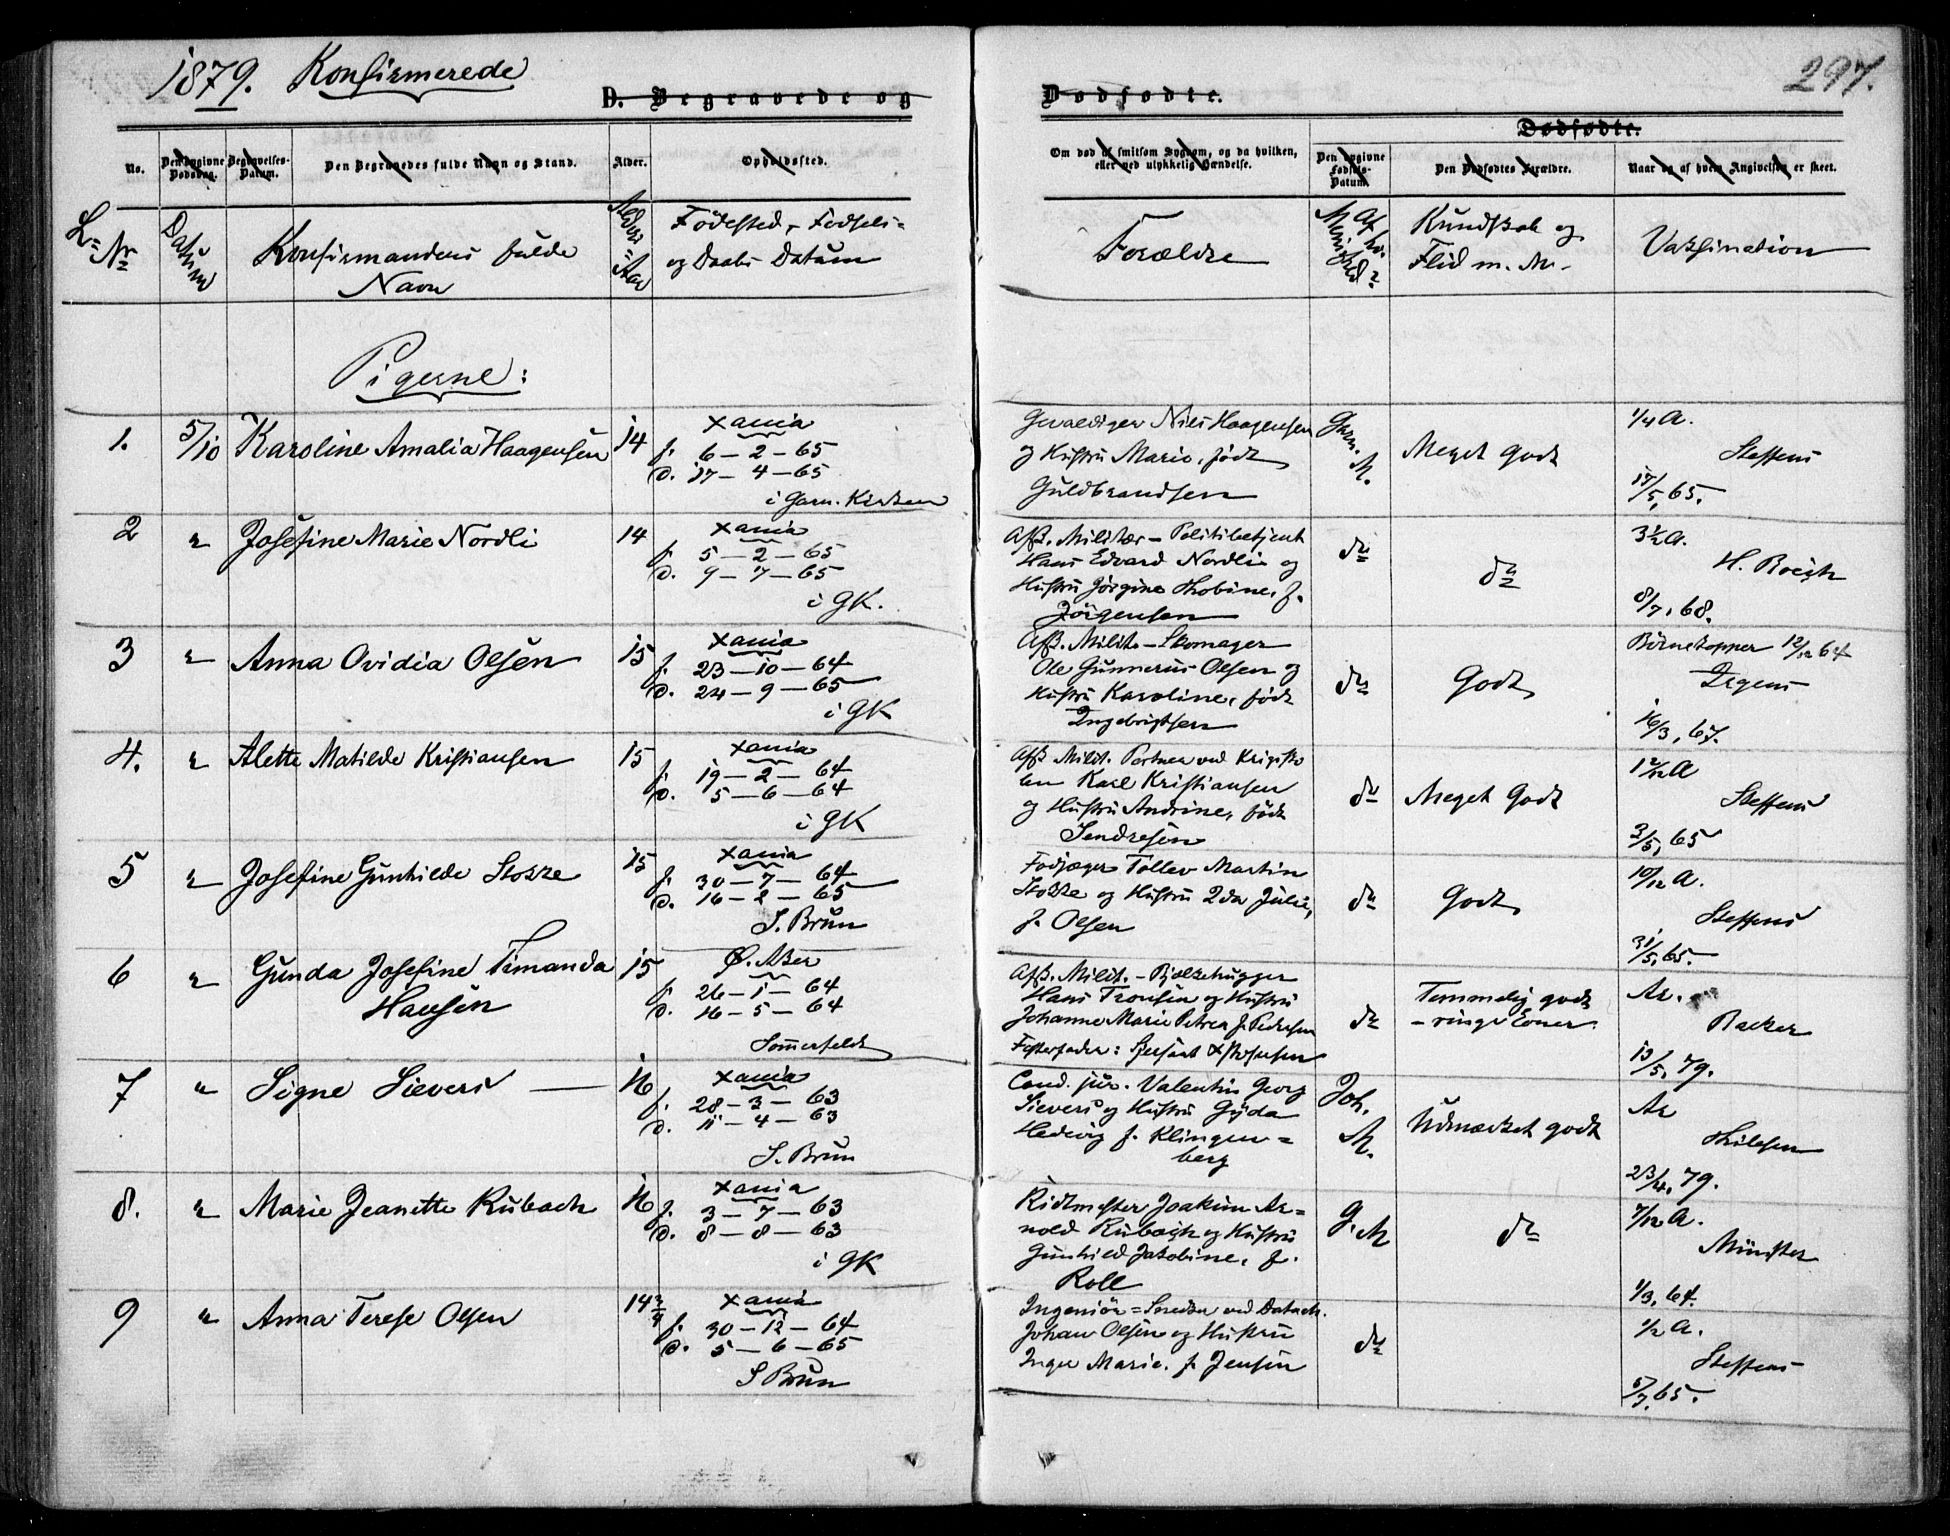 1879. Konfirmerede
D. Begravede og
Dødfødte.
297.
No.
Den opgivne Dødsdag.
Begravelses-Datum.
Den Begravedes fulde Navn og Stand.
Alder.
Opholdssted.
Om død af smitsom Sygdom, og da hvilken, eller ved ulykkelig Hændelse.
Dødfødte.
Den opgivne Fødsels-Datum.
Den Dødfødtes Forældre.
Naar og af hvem Angivelsen er skeet.
L= Nr
Datum
Konfirmandens fulde
Navn
Alders-Aar
Fødested, Fødsels-
og Daabs Datum
Forældre
Af hv. Menighed?
Kundskab og
Flid m. M.
Vaksination
Pigerne:
1.
5/10
Karoline Amalia Haagensen
14
Xania
f. 6-2-65
d. 17-4-65
i Garn. Kirken
Gevaldiger Niels Haagensen
og Hustru Marie, født
Guldbrandsen
Garn. M.
Meget godt
1/4 A.
Steffens
17/5, 65.
2
"
Josefine Marie Nordli
14
Xania
f. 5-2-65
d. 9-7-65
i GK.
Afsk. Militær-Politibetjent
Hans Edvard Nordli og
Hustru Jørgine Thobine, f.
Jørgensen
do
do
3½ A.
8/7, 68.
3
"
Anna Ovidia Olsen
15
Xania
f. 23-10-64
d. 24-9-65
i GK
Afsk. Milit.-Skomager
Ole Gunnerus Olsen og
Hustru Karoline, født
Ingebrigtsen
do
Godt
Børnekopper 12/12 64
Irgens
16/3, 67.
4.
"
Alette Matilde Kristiansen
15
Xania
f. 19-2-64
d. 5-6-64
i GK
Afsk. Milit. Portner ved Krigssko
len Karl Kristiansen
og Hustru Andrine, født
Sendresen
do
Meget godt
1 2/12 A
Steffens
3/5, 65
5
"
Josefine Gunhilde Stokke
15
Xania
f. 30-7-64
d. 16-2-65
S. Brun
Fodjæger Tollev Martin
Stokke og Hustru Ida Julie,
f. Olsen
do
Godt
10/12 A.
Steffens
31/5, 65.
6
"
Gunda Josefine Timanda
Hansen
15
Ø. Aker
f. 26-1-64
d. 16-5-64
Sommerfeldt
Afsk. Milit.-Bjelkehugger
Hans Tronsen og Hustru
Johanne Marie Petrea f. Pedersen
Fosterfader: Sersant
do
Temmelig godt
-ringe Evner
Ar.
Backer
13/5, 79.
7
"
Signe Sievers
16
Xania
f. 28-3-63
d. 11-4-63
S. Brun
Cand. jur. Valentin Georg
Sievers og Hustru Gyda
Hedevig f. Klingen=
berg
Joh. M.
Udmærket godt
Ar
Thilesen
23/4, 79.
8.
"
Marie Jeanette Rubach
16
Xania
f. 3-7-63
d. 8-8-63
i GK
Ridtmester Joakim Ar=
nold Rubach og Hustru
Gunhild Jakobine, f.
Roll
G. M
do
7/12 A.
Münster
1/3, 64.
9
"
Anna Terese Olsen
14 3/4
Xania
f. 30-12-64
d. 5-6-65
S Brun
Ingeniør=Snedker ved Detach.
Johan Olsen og Hustru
Inger Marie, f. Jensen
do
1/2 A.
Steffens
5/7, 65.